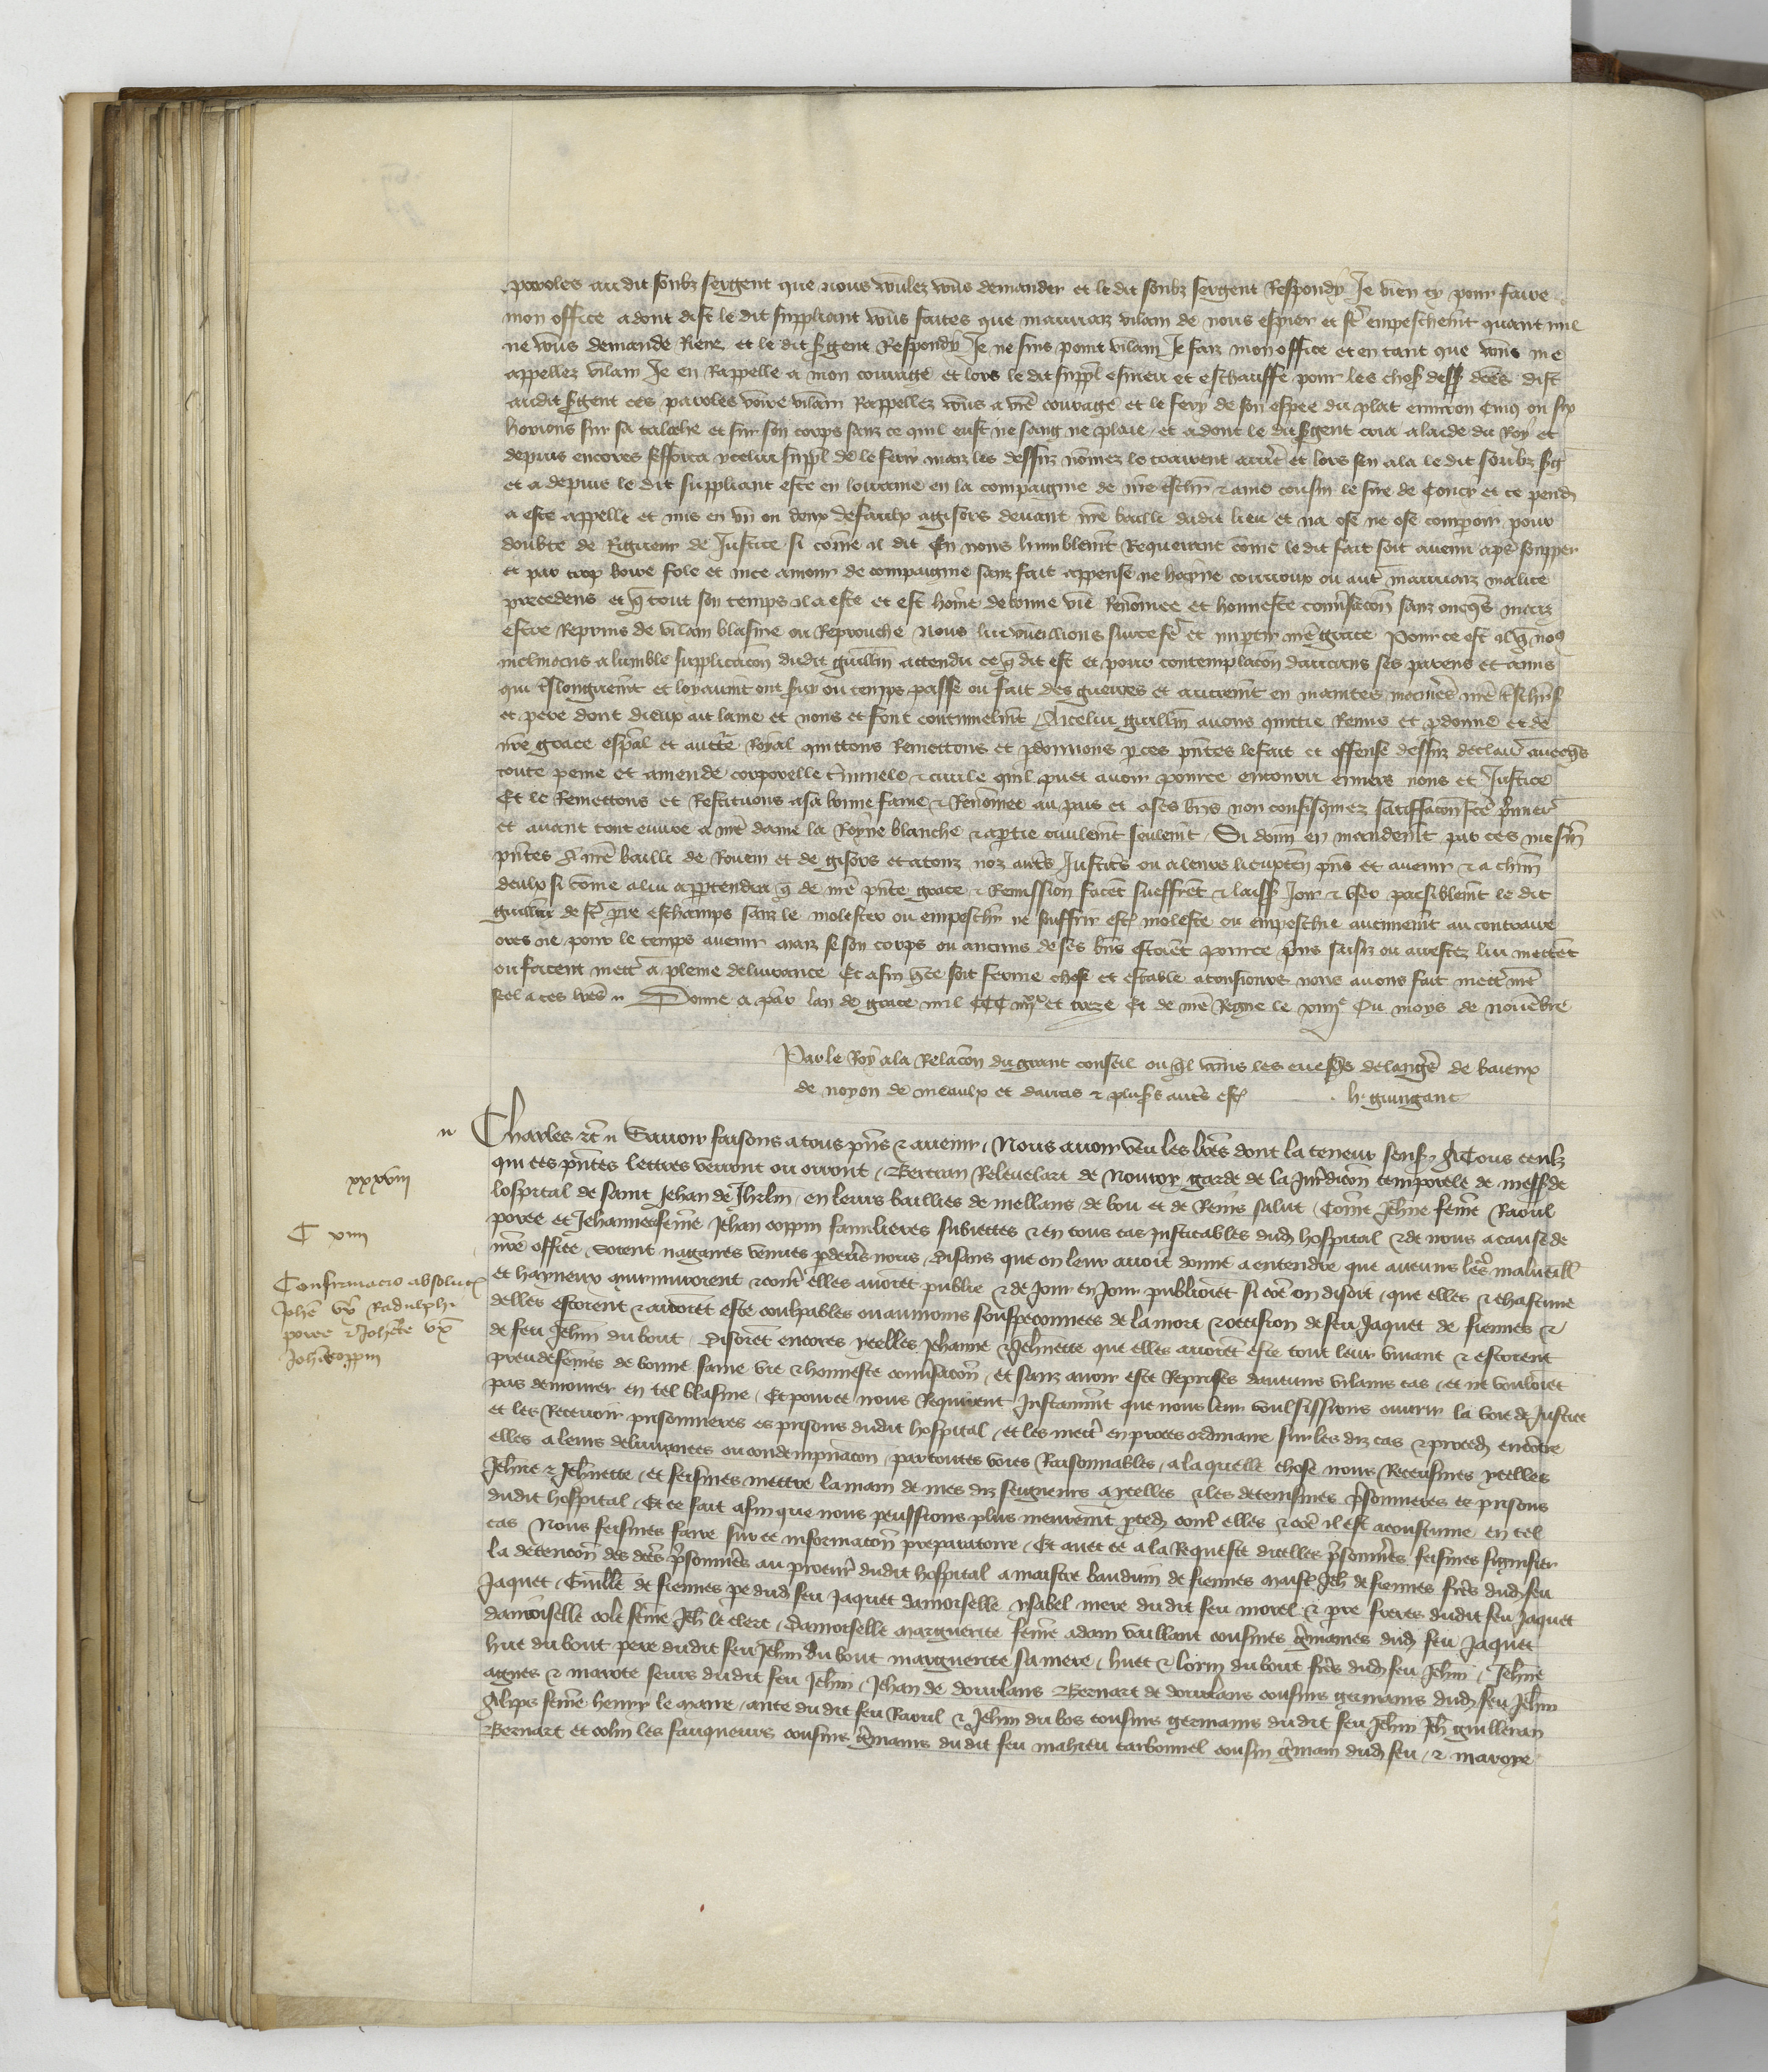 paroles audit soubz sergent que nous voulez vous demander et ledit soubz sergent Respondy Je vien cy pour faire
mon office adont dist le dit suppliant vous faites que mauvaiz vilain de nous espier et fe empeschemt quant nul
ne vous demande Riens et le dit sgent Respondy Je ne suis point vilain Je faiz mon office et en tant que vous me
appellez vilain Je en Rappelle a mon courage et lors le dit suppl esmeu et eschauffe pour les choses dess dces dist
audit sgent ces paroles voire vilain Rappellez vous a vre courage et le fery de son espee du plat environ cinq ou six
horions sur sa taloche et sur son corps sanz ce quil eust ne sang ne plaie et adont le dit sgent cria alaide du Roy et
depuis encores sefforca ycelui suppl de le ferir maiz les dessuz nomez le tairent arrie et lors sen ala le dit soubz sg
et a depuis le dit suppliant este en lorraine en la compaignie de nre tschier & ame cousin le sire de Coucy et ce pend
a este appelle et mis en un ou deux deffaulx a gisors devant nre bailli dudit lieu et na ose ne ose comparoir pour
doubte de Rigueur de Justice si come il dit En nous humblemt Requerant come le dit fait soit avenu apres soupper
et par trop boire fole et nice amour de compaignie sanz fait appense ne hayne courroux ou autre mauvaiz malice
precedens et q tout son temps il a este et est home de bonne vie Renomee et honneste conversacon sanz onques mais
estre Reprins de vilain blasme ou Reprouche nous lui vueillions sur ce fe et impartir nre grace Pour ce est il q nous
inclinons alumble supplicacon dudit guillin attendu ce q dit est et pour contemplacon daucuns ses parens et amis
qui tslonguemt et loyaumt ont suy ou temps passe ou fait des guerres et autremt en maintes manieres nre tschier s
et pere dont dieux ait lame et nous et font continuelmt Aicelui guillin avons quittie Remis et pdonne et de
nre grace espal et auctte Royal quittons Remettons et pdonnons p ces pntes le fait et offense dessuz declaire avecqs
toute peine et amende corporelle criminele & civile quil puet avoir pource encouru envers nous et Justice
Et le Remettons et Restituons a sa bonne fame & Renomee au pais et a ses bns non confisquez satisffacon fce pmier
et avant tout euvre a nre dame la Royne blanche & aptie civilemt seulemt Si donn en mandemt par ces mesm
pntes A nre bailli de Rouen et de gisors et a touz noz autres Justices ou a leurs lieuxten pns et avenir & a chun
deulx si come a lui apptendra q de nre pnte grace & Remission facet sueffret & laiss Joir & user paisiblemt le dit
guillin de st pre eschamps sanz le molester ou empeschier ne suffrir est moleste ou empeschie aucunemt au contraire
ores ne pour le temps avenir maiz se son corps ou aucuns de ses bns estoiet pource prins saisiz ou arrestez lui mettet
ou facent mettre a pleine delivrance Et afin q ce soit ferme chose et estable a tousiours nous avons fait mettre nre
scel a ces lres Donne a par lan de grace mil CCC iiijxx et treze Et de nre Regne le xiiije Ou moys de novebre
Par le Roy a la Relacon du grant conseil ou quel vous les evesqs de langres de baieux
de noyon de meaulx et darras & plusrs autres est h guingant
Charles etc Savoir faisons a tous pns & avenir Nous avoir veu les lres dont la teneur sensuit A Tous ceulx
qui ces pntes lettres verront ou orront Bertran Relevelart de Nouroy garde de la Juridicon temporele de mess de
lospital de saint Jehan de Jhrlm en leurs baillies de mellans de bou et de Reins salut Come Jehne feme Raoul
poree et Jehannete feme Jehan coppin familieres subiettes & en tous cas justicables dud hospital & de nous a cause de
nre office soient nagaires venues pdevers nous disans que on leur avoit donne a entendre que aucuns leurs malveill
et hayneux murmuroient & contre elles avoiet publie & de jour en jour publioiet si come on disoit que elles & chascune
delles estoient & avoiet este coulpables ou aumoins souspeconnees de la mort & occision de feu Jaquet de fiennes &
de feu Jehin du bout disoiet encores ycelles Jehanne & Jehnette que elles avoiet este tout leur vivant & estoient
preudefemes de bonne fame vie & honneste conversacon et sanz avoir este Reprises daucuns vilains cas et ne vouloiet
pas demourer en tel blasme Et pource nous Requirent Instamment que nous leur voulsissions ouvrir la voie de Justice
et les Recevoir prisonnieres es prisons dudit hospital et les mectre en proces ordinaire sur les diz cas & proced encotre
elles a leurs delivrances ou condempnacon par toutes voies Raisonnables a la quelle chose nous Receusmes ycelles
Jehne & Jehnette et feismes mettre la main de mes diz seigneurs a ycelles & les deteusmes prisonnieres es prisons
dudit hospital Et ce fait afin que nous peussions plus meurement proced contre elles & coe il est acoustume en tel
cas Nous feismes faire sur ce informacon preparatoire Et avec ce a la Requeste dicelles prisonnieres feismes signifier
la detencon des dces prisonnieres au procur dudit hospital a maistre bauduin de fiennes maist Jeh de fiennes freres dud feu
Jaquet Guille de fiennes pe dud feu Jaquet damoiselle ysabel mere dudit feu morel & pre freres dudit feu Jaquet
damoiselle cole feme Jeh le clerc Damoiselle marguerite feme adam vaillant cousines gmaines dud feu Jaquet
hue du bout pere dudit feu Jehin du bout marguerite sa mere huet & lorin du bout freres dud feu Jehin Jehne
agnes & marote seurs dudit feu Jehin Jehan de dourlans Bernart de dourlans cousins germains dud feu Jehin
Alips feme henry le maire ante dudit feu Raoul & Jehin du bos cousins germains dudit feu Jehin Jeh guilleran
Bernart et colin les fauqueurs cousins gmains dudit feu mahieu carbonnel cousin gmain dud feu & maroye
xxxviii
C xiiii
Confirmacio absolucois
Johe ux Radulphi
poree & Johete ux
Joh coppin